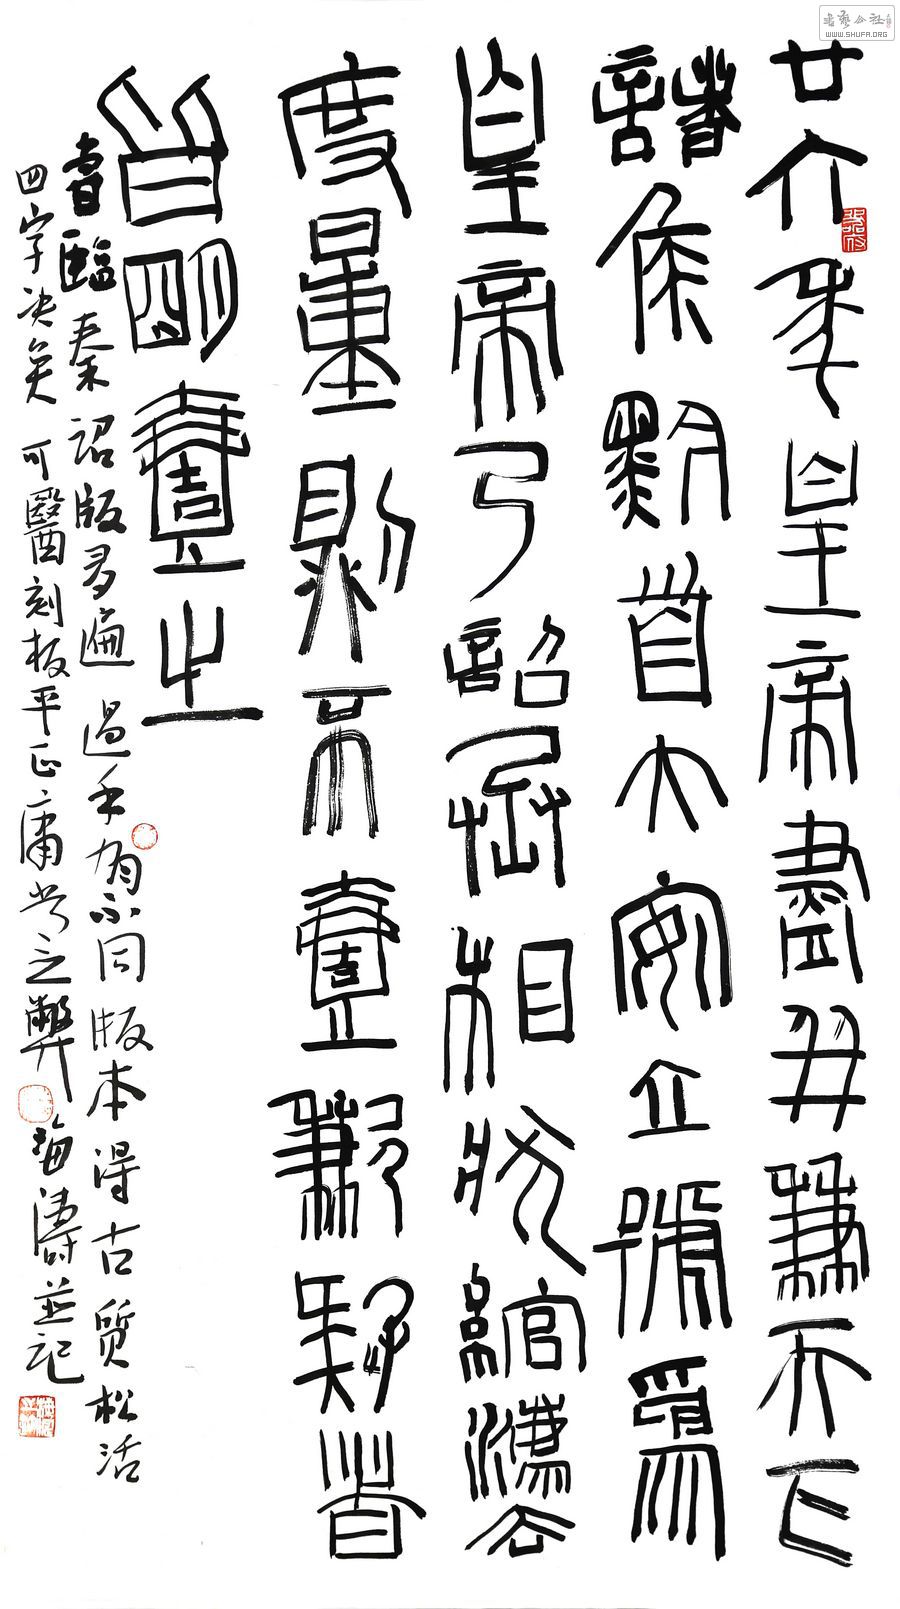 廿六年皇帝盡并兼天下
諸侯黔首大安立號為
皇帝乃詔丞相狀綰灋
度量則不壹歉疑者
皆明壹之
嘗臨秦詔版多遍過手有不同版本得古質松活
四字訣矣可醫刻板平正庸常之弊海濤並記
書藝公社
WWW.SHUFA.ORG